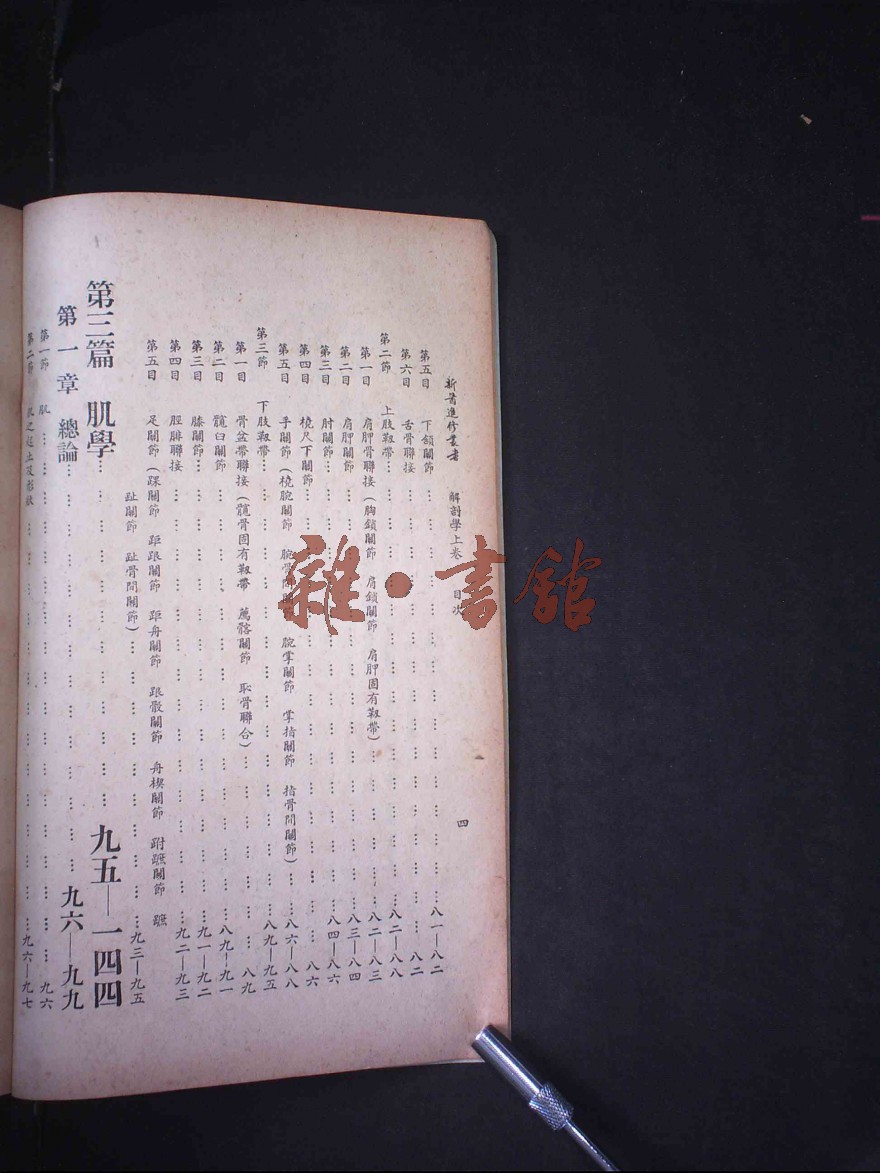 新醫進修叢書 解剖學上卷 目次 四
第五目 下頷關節……八一—八二
第六目 舌骨聯接……八二
第二節 上肢靱帶……八二—八八
第一目 肩胛骨聯接(胸鎖關節 肩鎖關節 肩胛固有靱帶)……八二—八三
第二目 肩胛關節……八三—八四
第三目 肘關節……八四—八六
第四目 橈尺下關節……八六
第五目 手關節(橈腕關節 腕骨間關節 腕掌關節 掌指關節 指骨間關節)……八六—八八
第三節 下肢靱帶……八九—九五
第一目 骨盆帶聯接(髖骨固有靱帶 薦髂關節 恥骨聯合)……八九
第二目 髖臼關節……八九—九一
第三目 膝關節……九一—九二
第四目 脛腓聯接……九二—九三
第五目 足關節(踝關節 距跟關節 距舟關節 跟骰關節 舟楔關節 跗蹠關節 蹠
趾關節 趾骨間關節)……九三—九五
第三篇 肌學……九五—一四四
第一章 總論……九六—九九
第一節 肌……九六
第二節 肌之起止及形狀……九六—九七
雜·書館